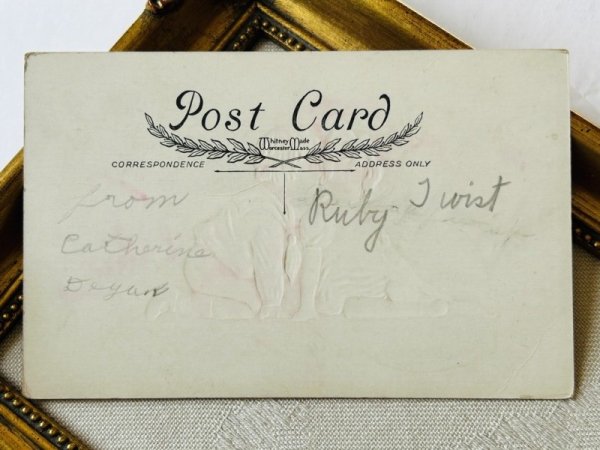 Post Card
Whitney Made
Worcester Mass
CORRESPONDENCE
ADDRESS ONLY
from
Catherine
Degan
Ruby Twist